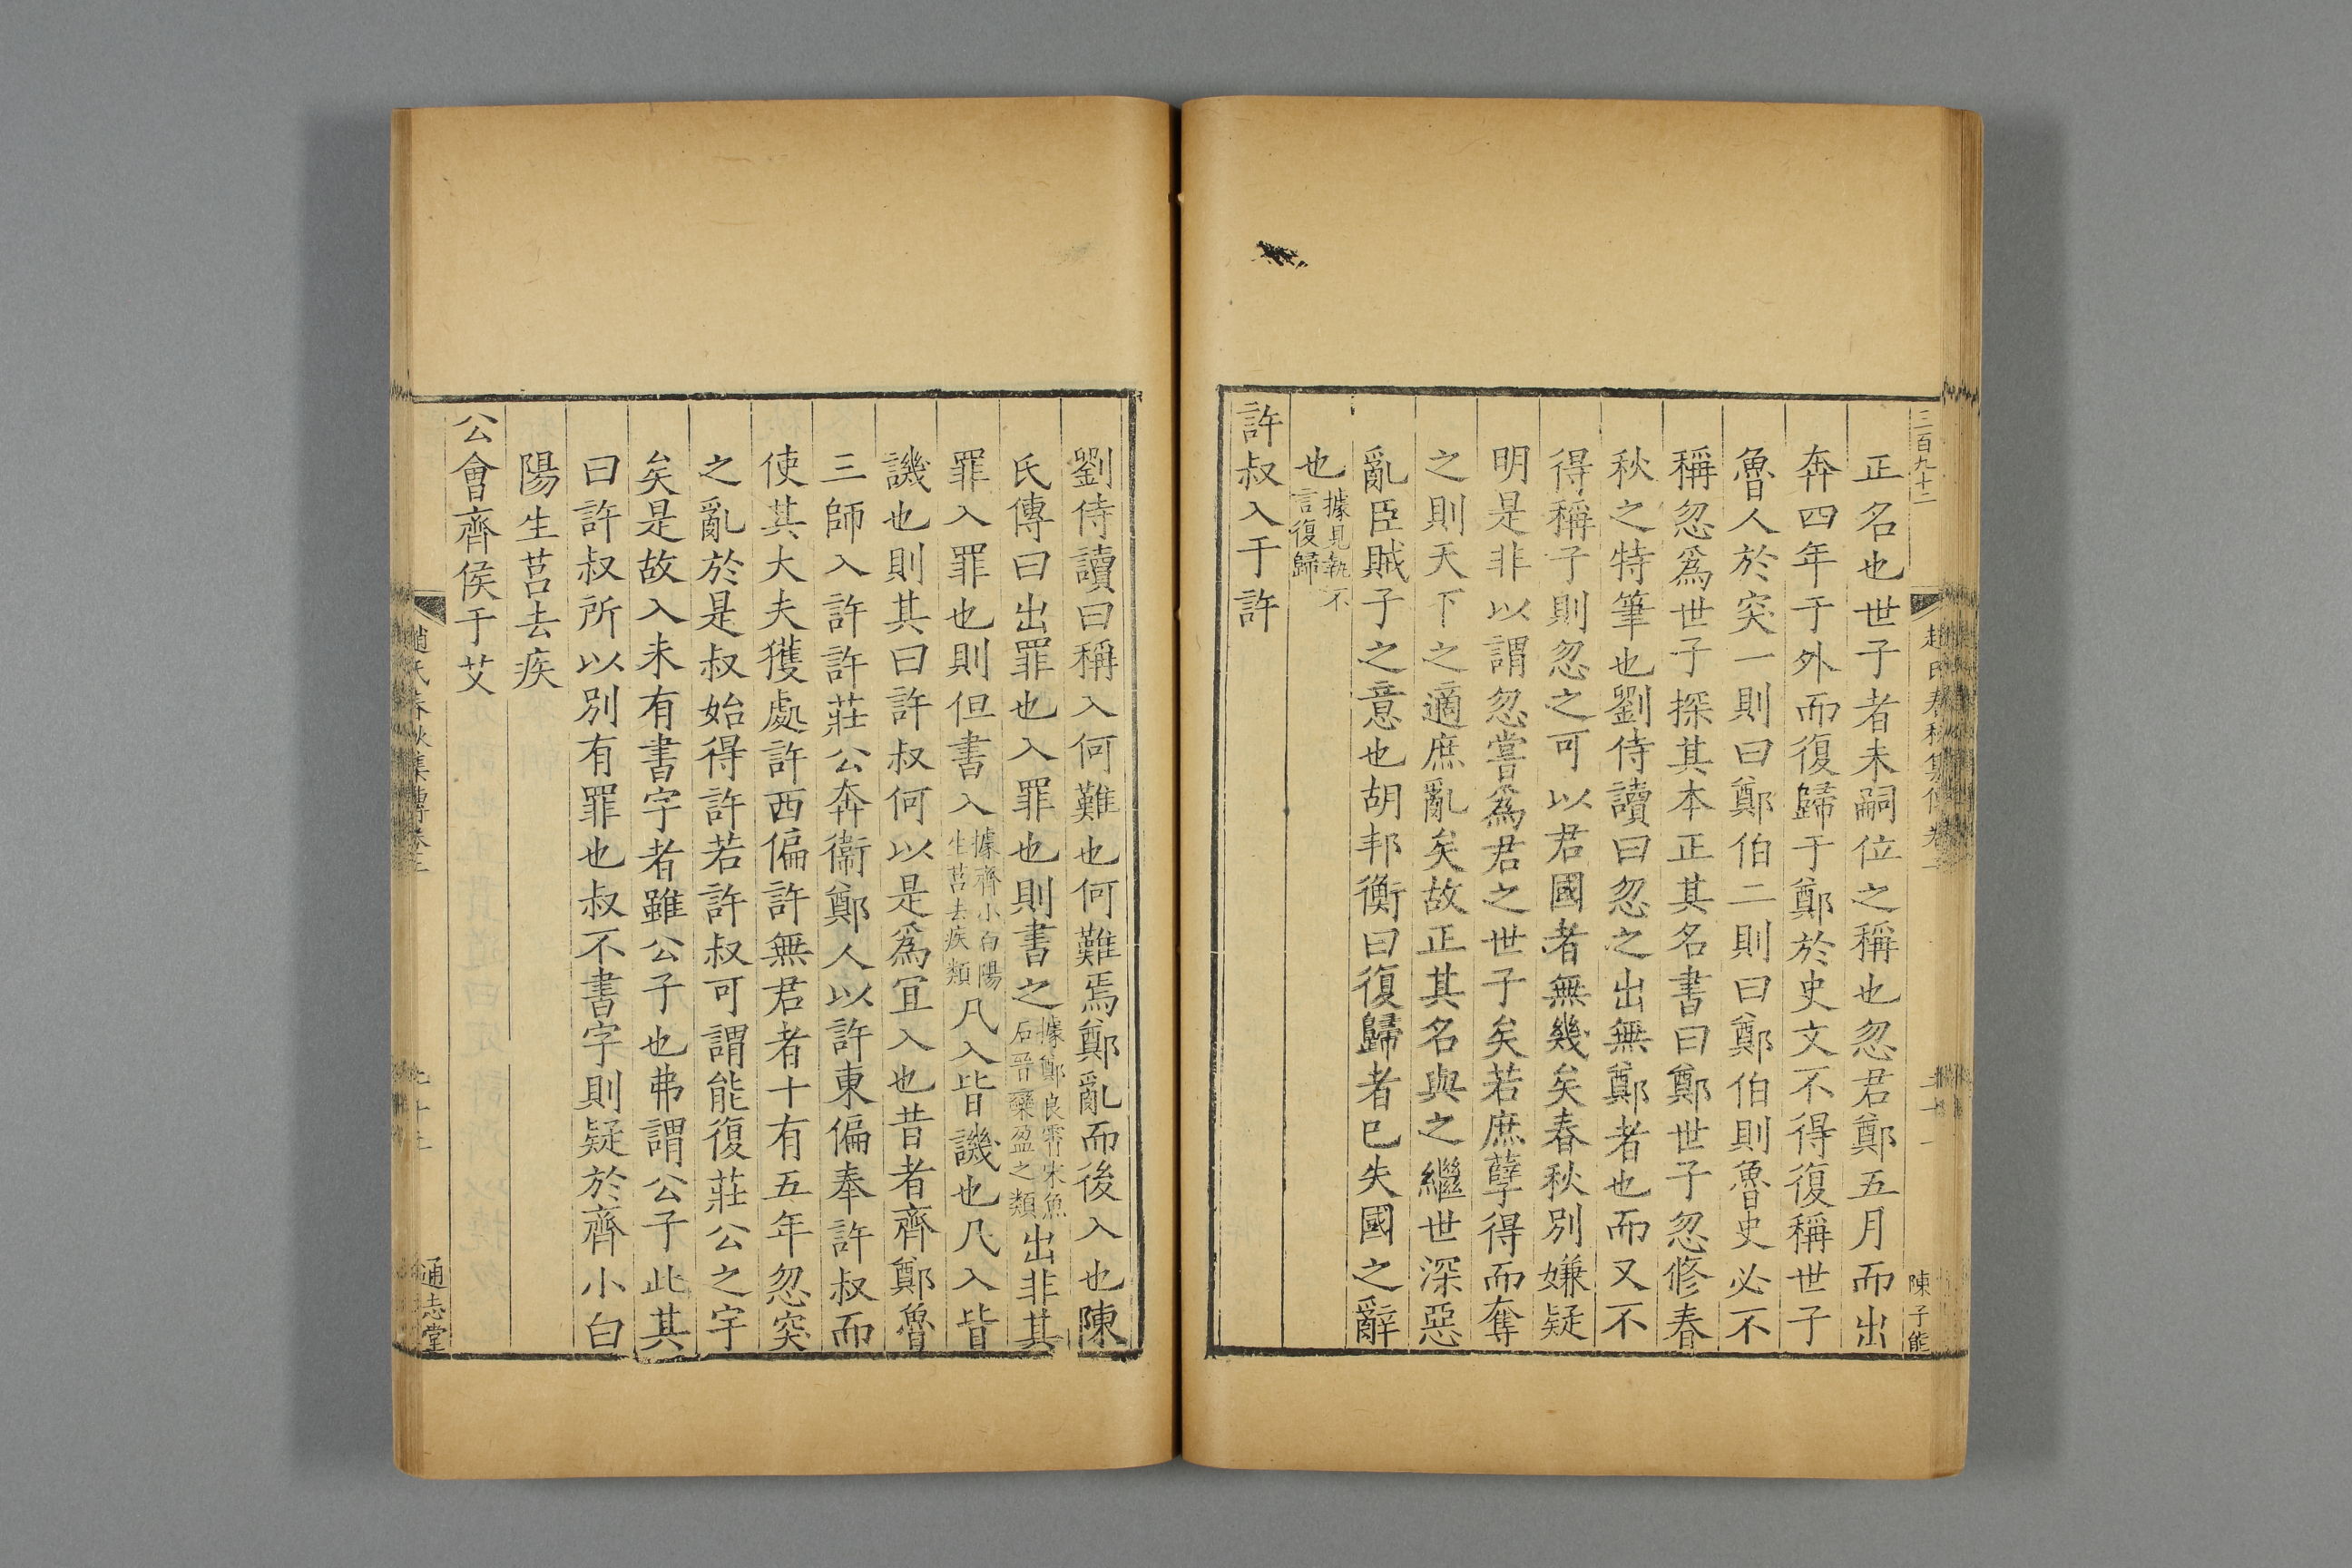 三百九十二
陳子能
正名也世子者未嗣位之稱也忽君鄭五月而出
奔四年于外而復歸于鄭於史文不得復稱世子
魯人於突一則曰鄭伯二則曰鄭伯則魯史必不
稱忽爲世子探其本正其名書曰鄭世子忽修春
秋之特筆也劉侍讀曰忽之出無鄭者也而又不
得稱子則忽之可以君國者無幾矣春秋別嫌疑
明是非以謂忽嘗爲君之世子矣若庶孽得而奪
之則天下之適庶亂矣故正其名與之繼世深惡
亂臣賊子之意也胡邦衡曰復歸者已失國之辭
也據見執不言復歸
許叔入于許
劉侍讀曰稱入何難也何難焉鄭亂而後入也陳
氏傳曰出罪也入罪也則書之據鄭良霄宋魚石晉欒盈之類出非其
罪入罪也則但書入據齊小白陽生莒去疾類凡入皆譏也凡入皆
譏也則其曰許叔何以是爲宜入也昔者齊鄭魯
三師入許許莊公奔衞鄭人以許東偏奉許叔而
使其大夫獲處許西偏許無君者十有五年忽突
之亂於是叔始得許若許叔可謂能復莊公之宇
矣是故入未有書字者雖公子也弗謂公子此其
曰許叔所以別有罪也叔不書字則疑於齊小白
陽生莒去疾
公會齊侯于艾
趙氏春秋集傳卷三
通志堂